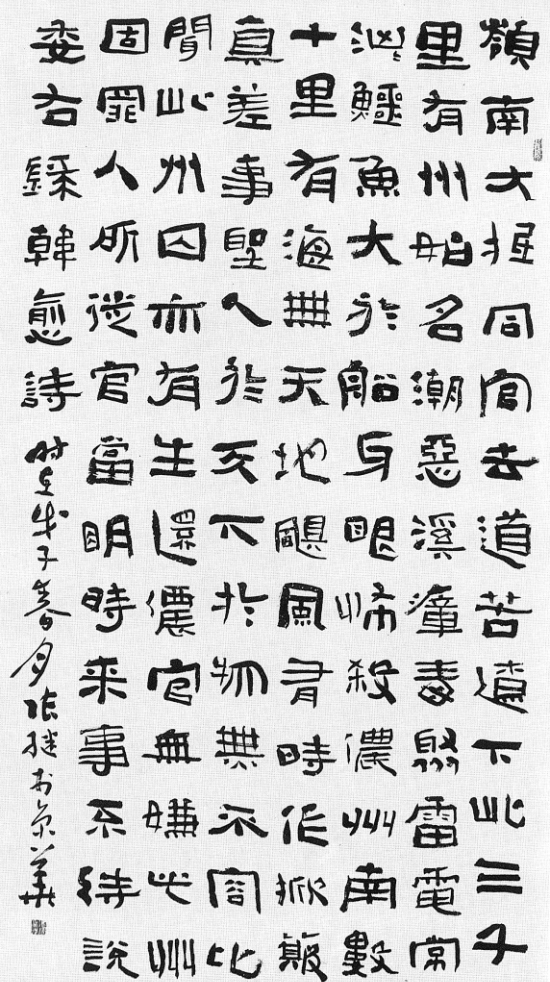 嶺南大抵同官去道苦遼下此三千
里有州始名潮惡溪瘴毒聚雷電常
洶鱷魚大於船牙眼怖殺儂州南數
十里有海無天地颶風有時作掀簸
真差事聖人於天下於物無不容比
聞此州囚亦有生還儂官無嫌此州
固罪人所徙官當明時来事不待說
委右錄韓愈詩 時在戊子春月張繼於京華